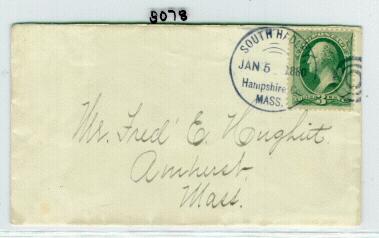 8078
SOUTH H
JAN 5 1880
Hampshire
MASS.
3
Mr. Fred E. Hughitt,
Amherst,
Mass.